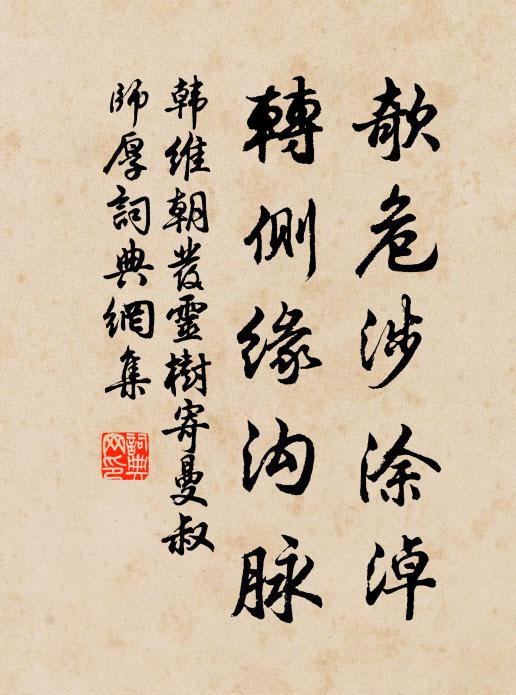 欹危涉涂淖
轉側緣沟脉
韩維朝發靈樹寄曼叔
師厚詞典網集
詞典网印